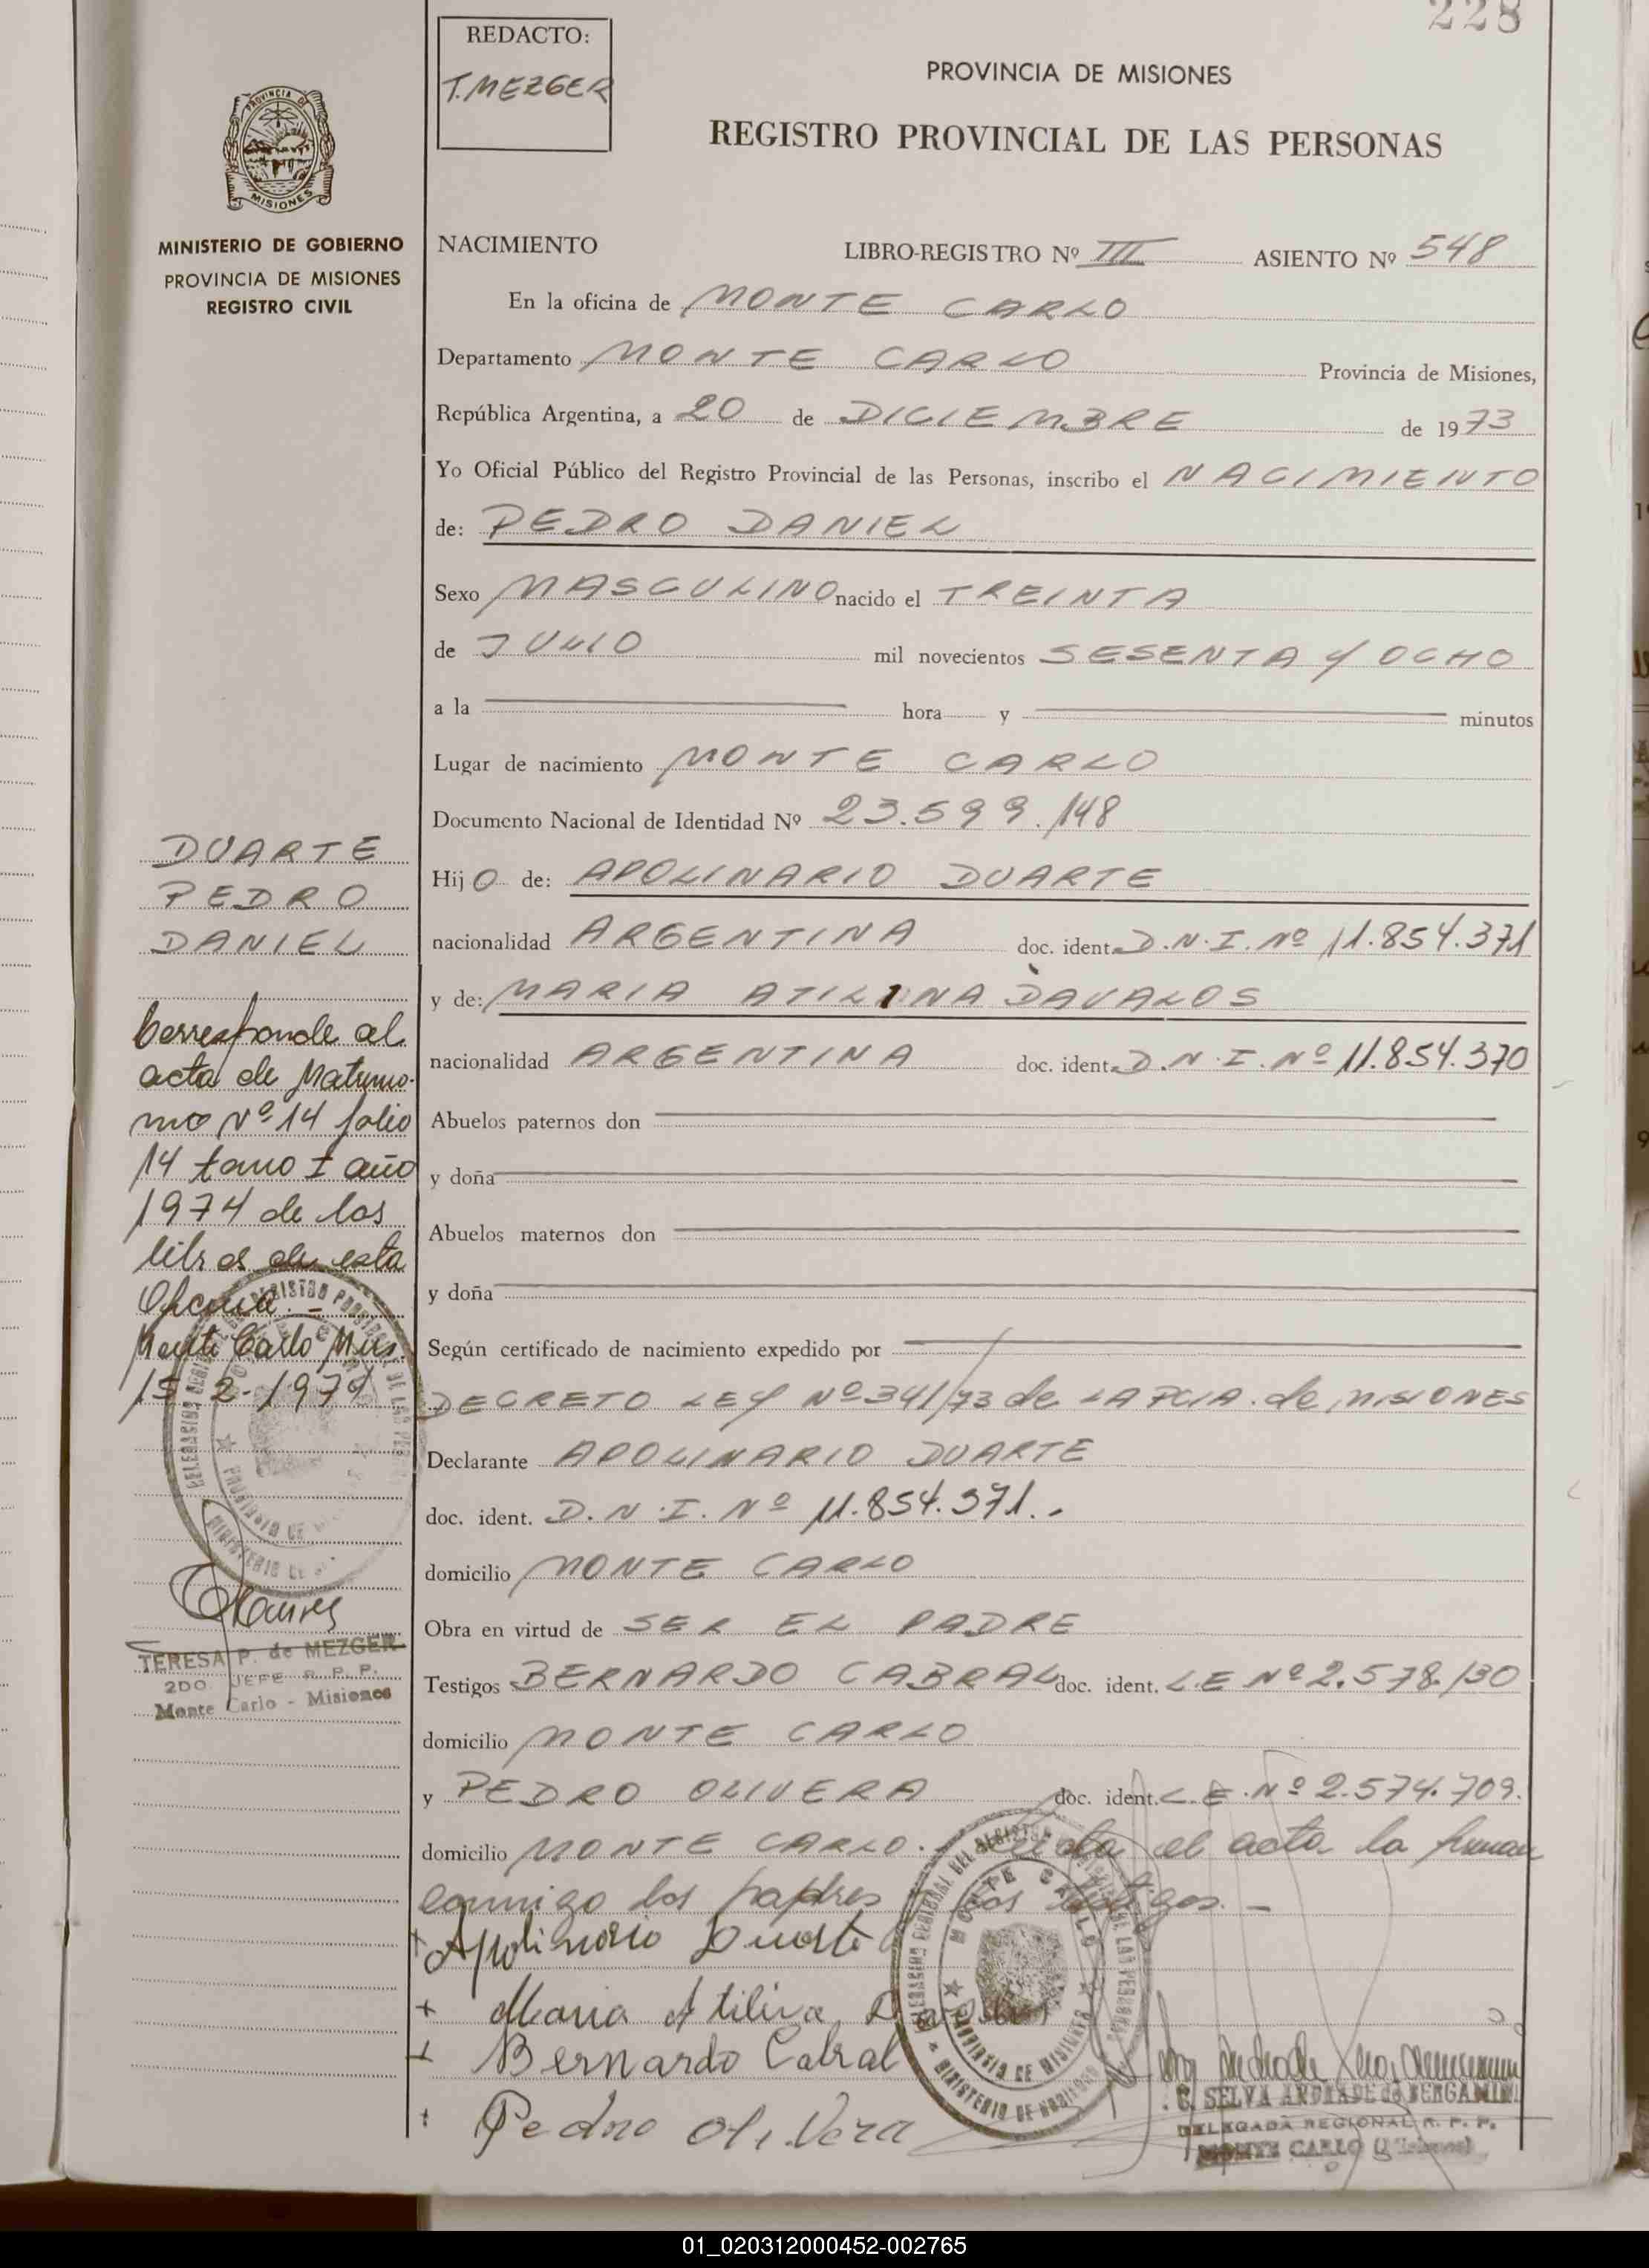 228
REDACTO:
T. MEZGER
PROVINCIA DE MISIONES
REGISTRO PROVINCIAL DE LAS PERSONAS
PROVINCIA DE
MISIONES
MINISTERIO DE GOBIERNO
PROVINCIA DE MISIONES
REGISTRO CIVIL
NACIMIENTO LIBRO-REGISTRO Nº III ASIENTO Nº 548
En la oficina de MONTE CARLO
Departamento MONTE CARLO Provincia de Misiones,
República Argentina, a 20 de DICIEMBRE de 1973
Yo Oficial Público del Registro Provincial de las Personas, inscribo el NACIMIENTO
de: PEDRO DANIEL
Sexo MASCULINO nacido el TREINTA
de JULIO mil novecientos SESENTA Y OCHO
a la hora y minutos
Lugar de nacimiento MONTE CARLO
Documento Nacional de Identidad Nº 23.599.148
Hijo de: APOLINARIO DUARTE
nacionalidad ARGENTINA doc. ident. D.N.I. Nº 11.854.371
y de: MARIA ATILINA DAVALOS
nacionalidad ARGENTINA doc. ident. D.N.I. Nº 11.854.370
Abuelos paternos don
y doña
Abuelos maternos don
y doña
Según certificado de nacimiento expedido por
DECRETO LEY Nº 341/73 de LA PCIA. de MISIONES
Declarante APOLINARIO DUARTE
doc. ident. D.N.I. Nº 11.854.371.-
domicilio MONTE CARLO
Obra en virtud de SER EL PADRE
Testigos BERNARDO CABRAL doc. ident. L.E Nº 2.578.130
domicilio MONTE CARLO
y PEDRO OLIVERA doc. ident. L.E. Nº 2.574.709.
domicilio MONTE CARLO. el acta la firman
conmigo los padres los testigos. -
+ Apolinario Duarte
+ Maria Atilina
+ Bernardo Cabral
+ Pedro Olivera
DUARTE
PEDRO
DANIEL
Corresponde al
acta de Matrimo-
nio Nº 14 folio
14 tomo I año
1974 de los
libros de esta
Oficina. -
Monte Carlo Mnes.
15-2-1974
TERESA P. de MEZGER
2DO. JEFE R. P. P.
Monte Carlo - Misiones
MONTE CARLO
PROVINCIA DE MISIONES
C. SELVA ANDRADE de BERGAMINI
DELEGADA REGIONAL R. P. P.
MONTE CARLO (Misiones)
01_020312000452-002765